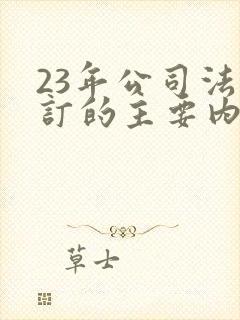 23年公司法
訂的主要内
草士